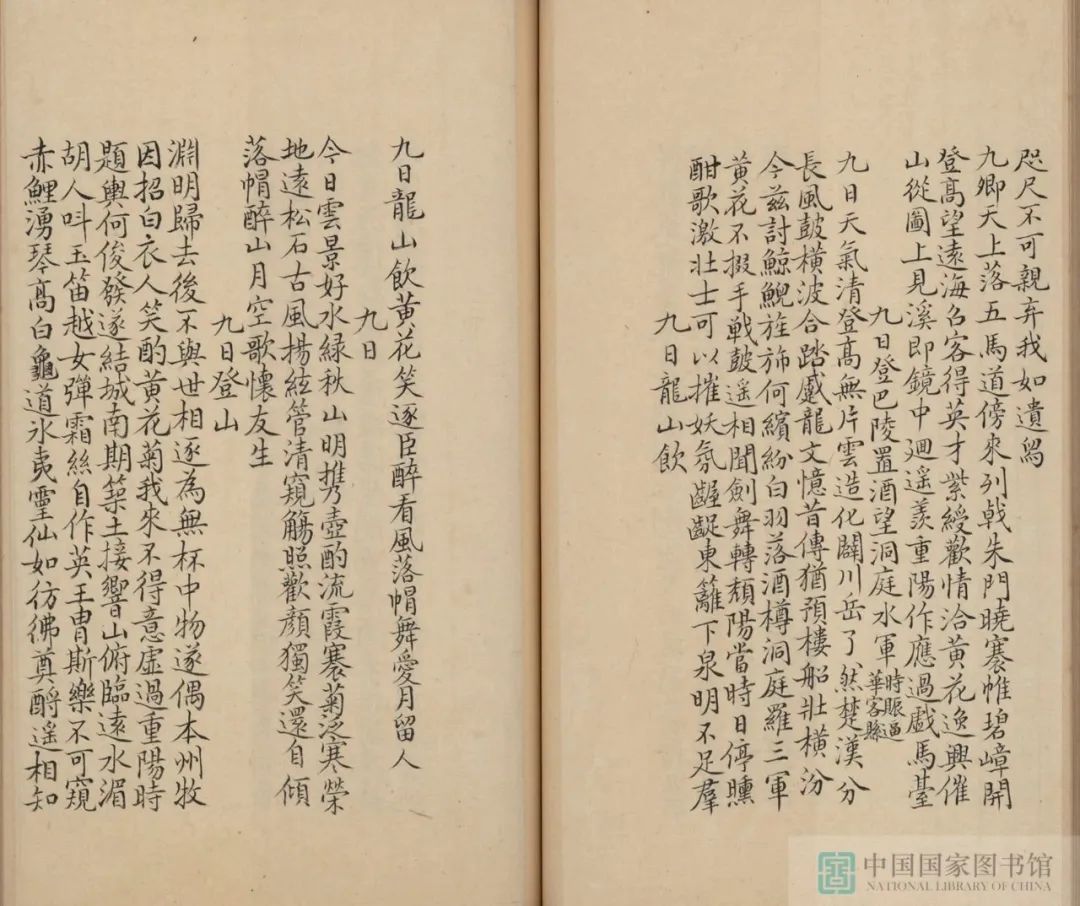 咫尺不可親弃我如遺舄
九卿天上落五馬道傍來列戟朱門曉褰帷碧嶂開
登高望遠海召客得英才紫綬歡情洽黃花逸興催
山從圖上見溪即鏡中廻遥羨重陽作應過戲馬臺
九日登巴陵置酒望洞庭水軍 時賊逼華容縣
九日天氣清登高無片雲造化闢川岳了然楚漢分
長風鼓橫波合踏蹙龍文憶昔傳猶預樓船壯橫汾
今兹討鯨鯢旌斾何繽紛白羽落酒樽洞庭羅三軍
黃花不掇手戰鼓遥相聞劍舞轉頹陽當時日停曛
酣歌激壯士可以摧妖氛齷齪東籬下泉明不足羣
九日龍山飲
九日龍山飲黃花笑逐臣醉看風落帽舞愛月留人
九日
今日雲景好水綠秋山明携壺酌流霞搴菊泛寒榮
地遠松石古風揚絃管清窺觴照歡顏獨笑還自傾
落帽醉山月空歌懷友生
九日登山
淵明歸去後不與世相逐為無杯中物遂偶本州牧
因招白衣人笑酌黃花菊我來不得意虛過重陽時
題輿何俊發遂結城南期築土接響山俯臨遠水湄
胡人叫玉笛越女彈霜絲自作英王胄斯樂不可窺
赤鯉湧琴高白龜道氷夷靈仙如彷彿奠酹遥相知
中国国家图书馆
NATIONAL LIBRARY OF CHINA